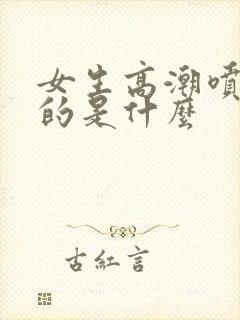 女生高潮噴
的是什麼
古紅言